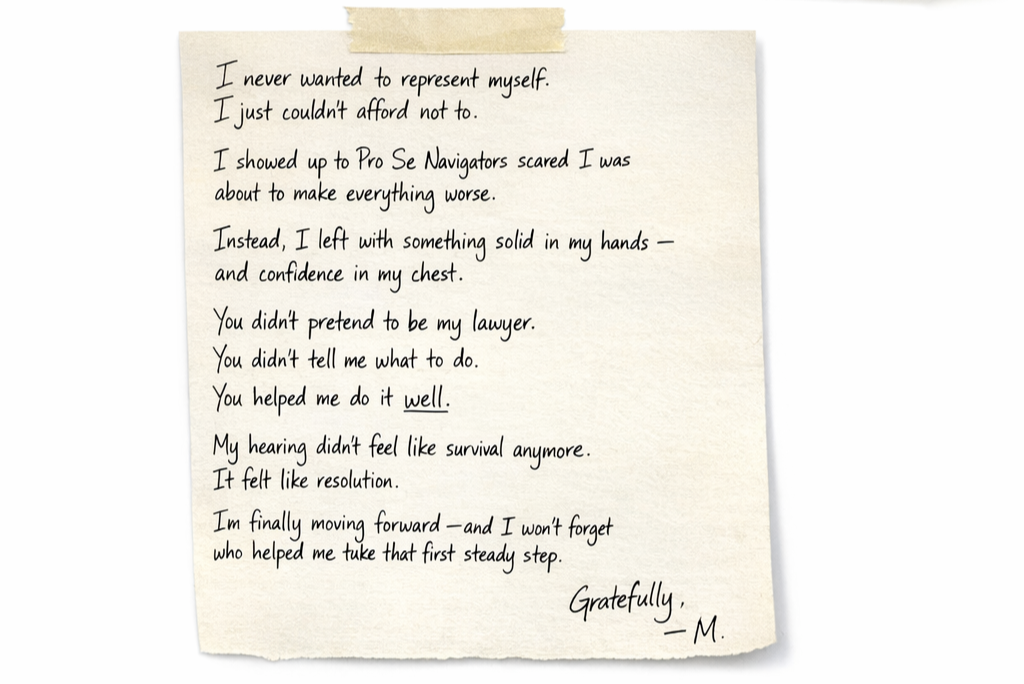 I never wanted to represent myself.
I just couldn't afford not to.
I showed up to Pro Se Navigators scared I was
about to make everything worse.
Instead, I left with something solid in my hands —
and confidence in my chest.
You didn't pretend to be my lawyer.
You didn't tell me what to do.
You helped me do it well.
My hearing didn't feel like survival anymore.
It felt like resolution.
Im finally moving forward —and I won't forget
who helped me tuke that first steady step.
Gratefully,
— M.